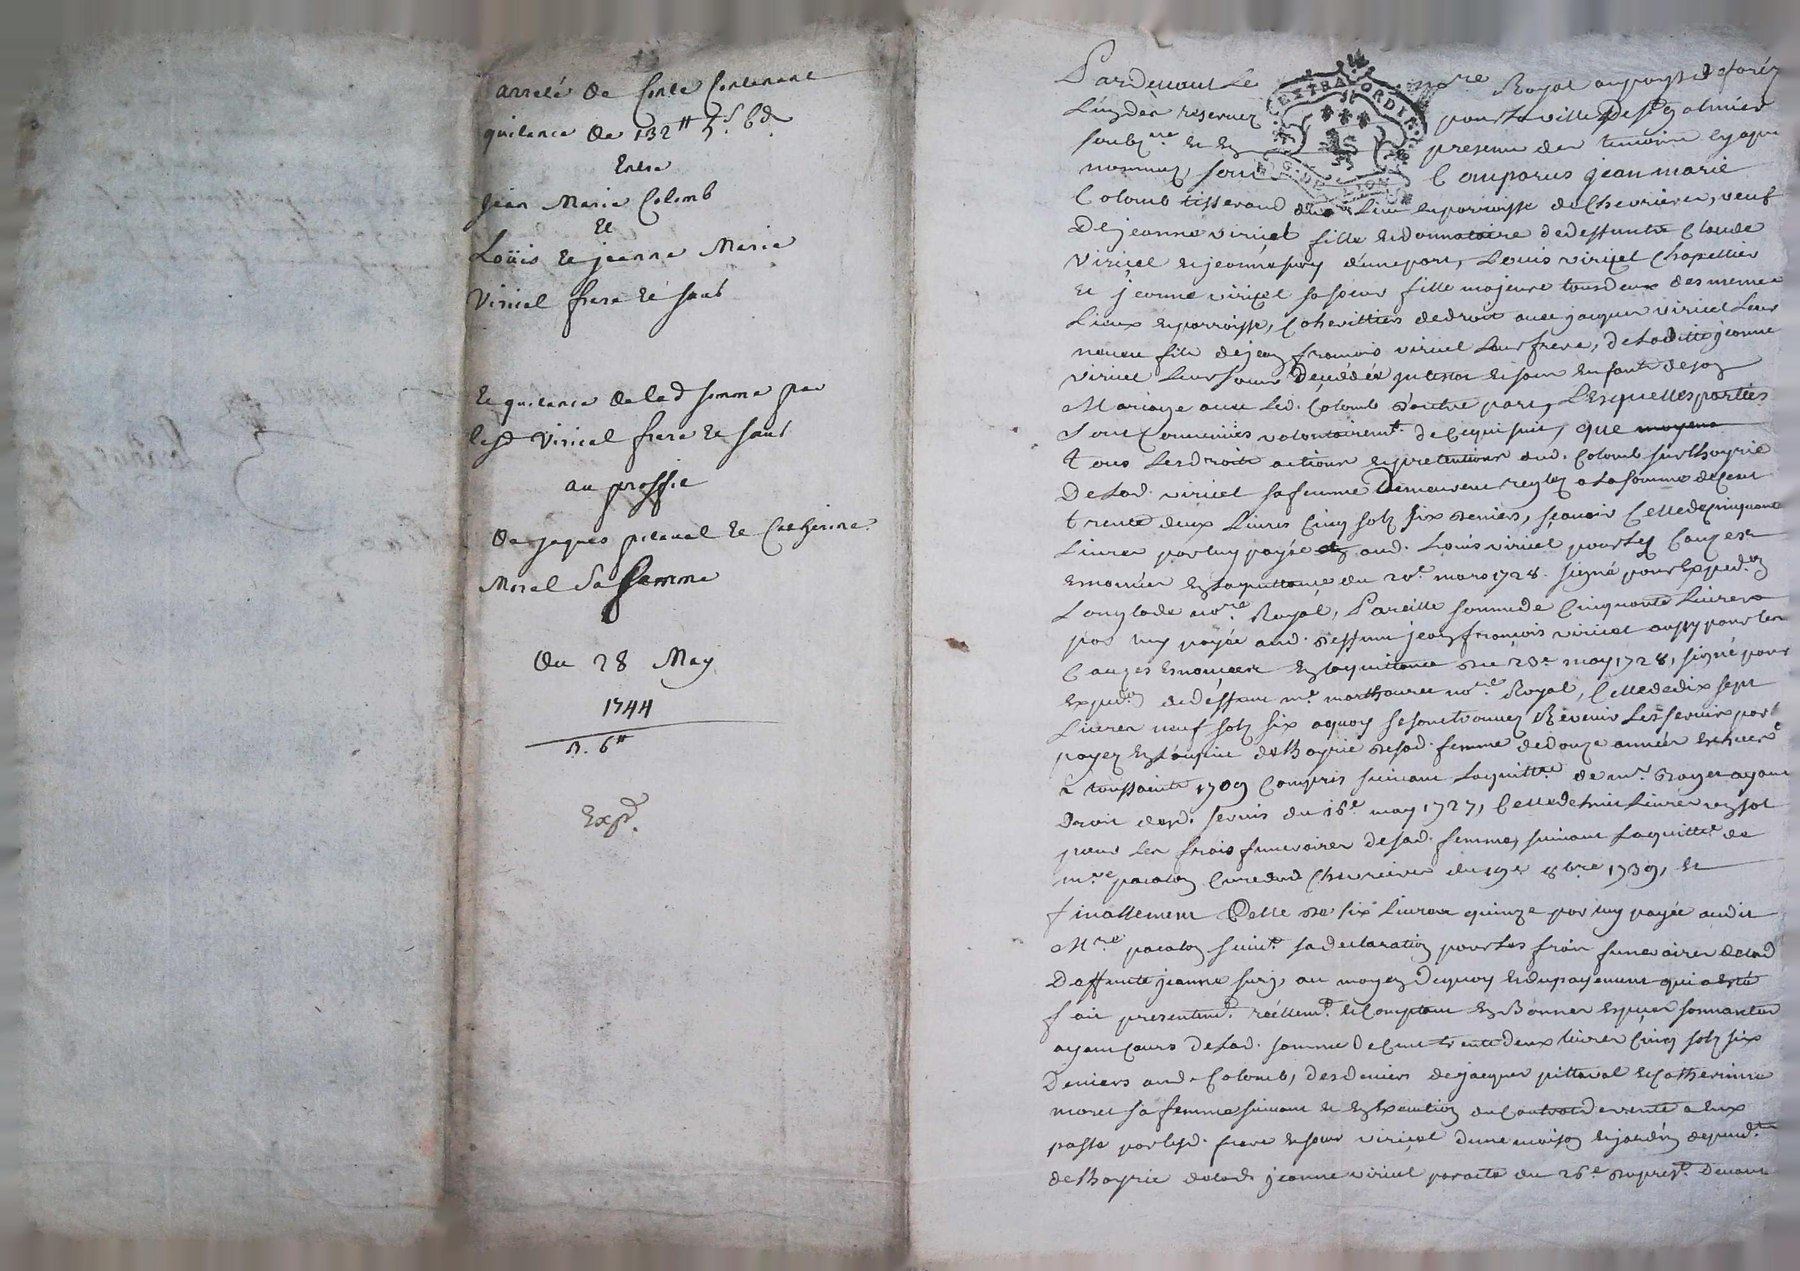 arresté de Conte Contenant
quitance de 132tt 5s. 6d.
Entre
jean Marie Colomb
Et
Loüis et jeanne Marie
Viricel frere et sœur
Et quitance de lad somme par
lesd Viricel frere et sœur
au proffit
de jaques pitaval et Catherine
Morel sa femme
du 28 May
1744
R. 6tt
Expd.
Pardevant Le nore Royal au pays de forez
EXTRAORDIR
G. DE LYON
pour la ville de st galmier
soubzné et en presence des temoins
nommez, sont Comparus jean marie
Colomb tisserand du Lieu et parroisse de Chevrieres, veuf
de jeanne viricel fille et donnataire de deffuntz Claude
viricel et jeanne d'une part, Louis viricel Chapellier
et jeanne viricel sa sœur fille majeure tous deux des memes
Lieux et parroisse, Coheritiers de droit avec jacques viricel Leur
neveu fils de jean francois viricel Leur frere, de Laditte jeanne
viricel Leur sœur decédée et sans enfants de son
Mariage avec Led. Colomb d'autre part, Lesquelles parties
sont Convenües volontairemt. de Ce qui suit, que
tous Les droits actions et pretentions dud. Colomb sur Lhoyrie
de Lad. viricel sa femme demeurent reglez a La somme de Cent
trente deux Livres Cinq sols six deniers, sçavoir Celle de Cinquante
Livres par luy payée aud. Louis viricel pour Les Causes
enoncées en La quittance du 20e. mars 1728. signé pour Expedon
nore Royal, Pareille somme de Cinquante Livres
par luy payée aud. deffunt jean francois viricel aussy pour les
Causes enoncées en La quittance du 23e may 1728, signé pour
Expedon. de deffunt me. nore. Royal, Celle de dix sept
Livres neuf sols six a quoy se sont trouvez Revenir Les servis par
payez en de Lhoyrie de sad. femme de douze années
a toussaints 1709 Compris suivant La quittce. de mr. ayant
droit desd. servis du 16e. may 1727, Celle de huit Livres un sol
pour Les frais funeraires de sad. femme, suivant La quittce. de
mre. pacalon Curé dud Chevrieres du 19e 8bre 1739, et
finallement Celle de six Livres quinze par luy payée audit
Mre. pacalon suivt. sa declaration pour Les frais funeraires de lad
deffunte jeanne, au moyen de quoy et du payement qui a esté
fait presentemt. réellemt. et Comptant en Bonnes especes sonnantes
ayant Cours de Lad. somme de Cent trente deux livres Cinq sols six
Deniers aud. Colomb, des deniers de jacques pittaval et Catherinne
morel sa femme suivant et en Execution du Contract de vente a Eux
passé par lesd. frere et sœur viricel d'une maison et jardin dependts
de Lhoyrie de lad. jeanne viricel par acte du 26e. du prest. devant